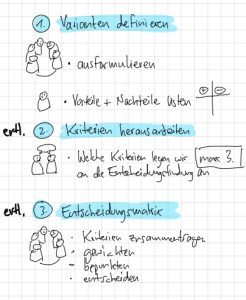 1. Varianten definieren
• ausformulieren
• Vorteile + Nachteile listen + -
evtl. 2. Kriterien herausarbeiten
• Welche Kriterien legen wir max 3.
an die Entscheidungsfindung an
evtl. 3. Entscheidungsmatrix
- Kriterien zusammentragen
• gewichten
• bepunkten
• entscheiden